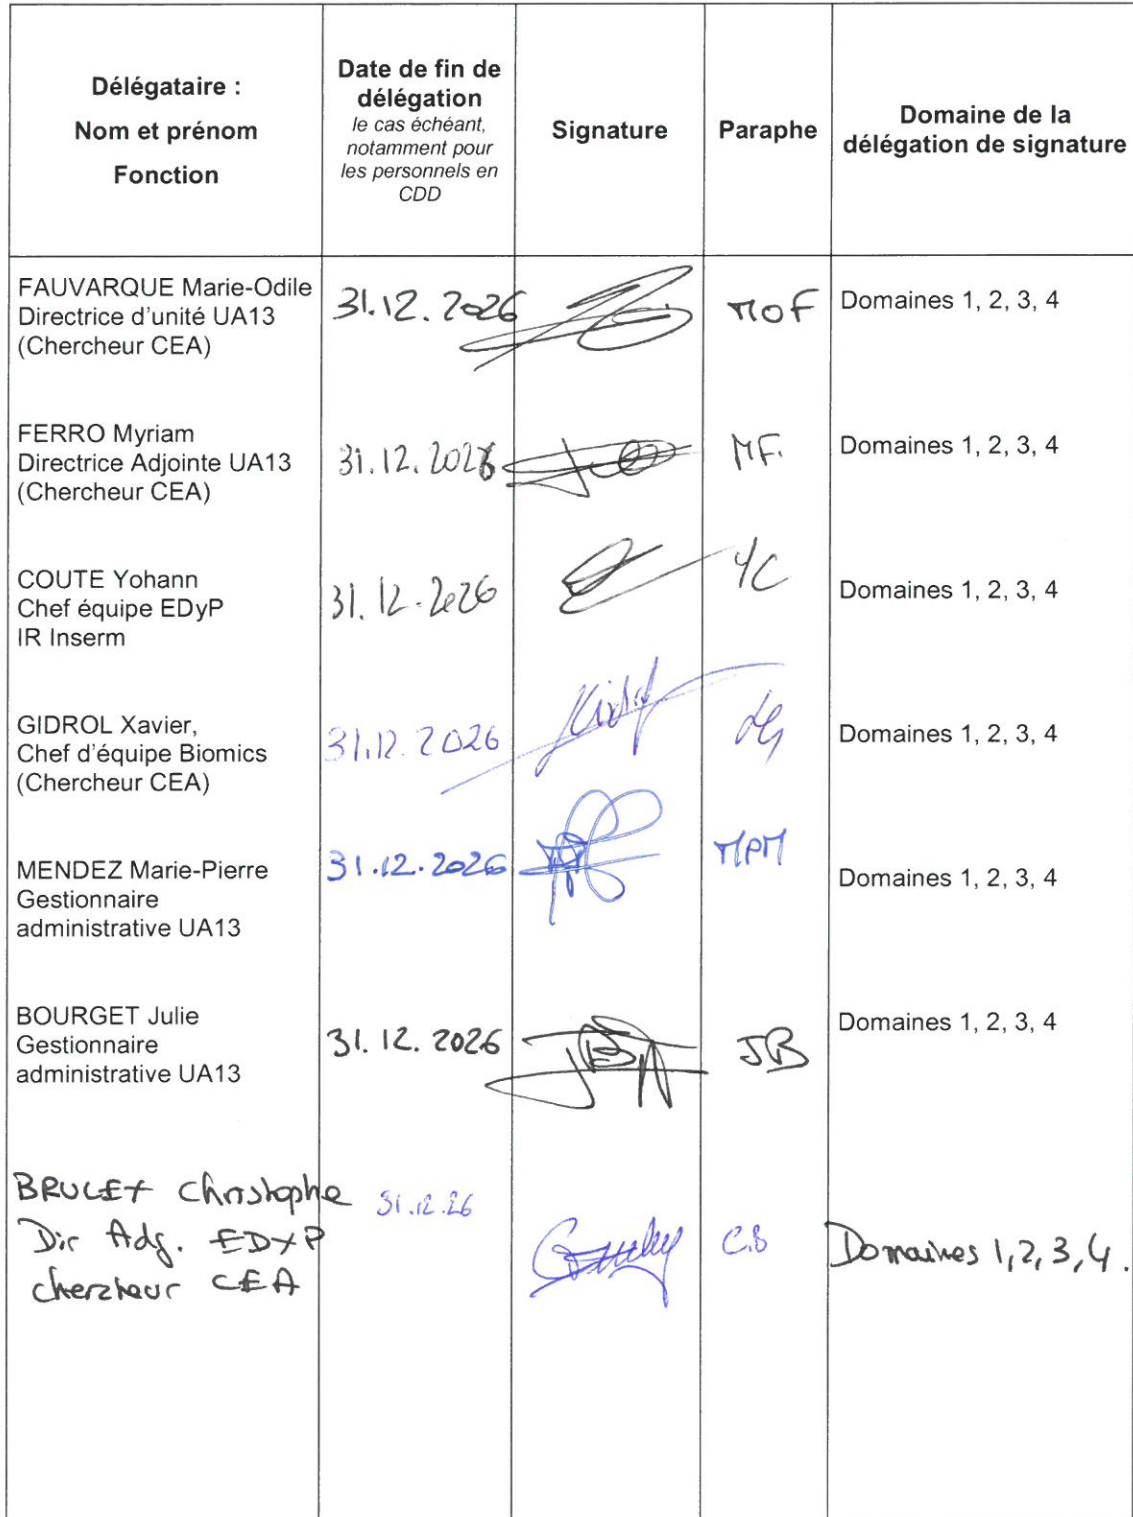 Délégataire :
Nom et prénom
Fonction
Date de fin de
délégation
le cas échéant,
notamment pour
les personnels en
CDD
Signature
Paraphe
Domaine de la
délégation de signature
FAUVARQUE Marie-Odile
Directrice d'unité UA13
(Chercheur CEA)
31.12.2026
MOF
Domaines 1, 2, 3, 4
FERRO Myriam
Directrice Adjointe UA13
(Chercheur CEA)
31.12.2026
MF.
Domaines 1, 2, 3, 4
COUTE Yohann
Chef équipe EDyP
IR Inserm
31.12.2026
YC
Domaines 1, 2, 3, 4
GIDROL Xavier,
Chef d'équipe Biomics
(Chercheur CEA)
31.12.2026
Domaines 1, 2, 3, 4
MENDEZ Marie-Pierre
Gestionnaire
administrative UA13
31.12.2026
MPM
Domaines 1, 2, 3, 4
BOURGET Julie
Gestionnaire
administrative UA13
31.12.2026
JB
Domaines 1, 2, 3, 4
BRULEY Christophe
Dir Adj. EDyP
chercheur CEA
31.12.26
C.B
Domaines 1, 2, 3, 4.